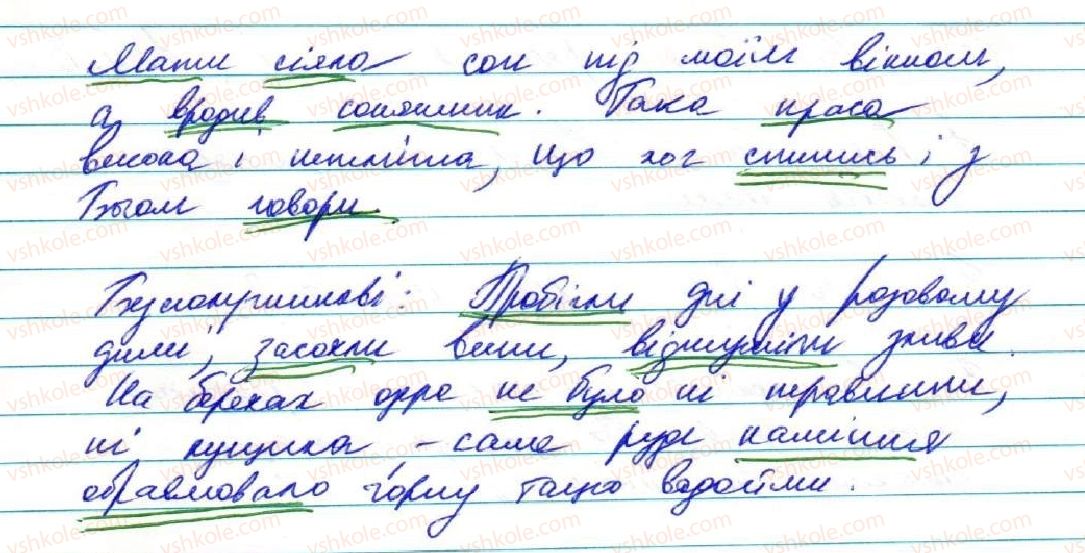 Мати сіяла сон під моїм вікном,
а вродив соняшник. Така краса
висока і нетлінна, що хоч спинись і з
Богом говори.
Безсполучникові: Пробігли дні у розовому
димі, засохли вишні, відшуміли зливи.
На берегах озера не було ні травинки,
ні кущика – саме руде каміння
обрамовало гірну чашу водойми.